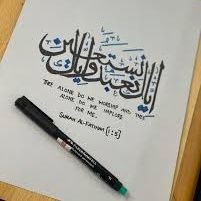 إياك نعبد وإياك نستعين
THEE ALONE DO WE WORSHIP AND THEE
ALONE DO WE IMPLORE
FOR ME.
SURAH AL-FATIHAH [1:5]